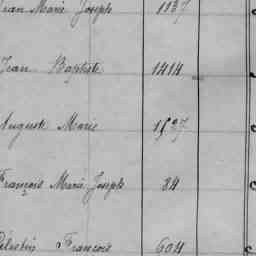 Jean Marie Joseph 1137
Jean Baptiste 1414
Auguste Marie 1537
François Marie Joseph 84
Célestin François 604